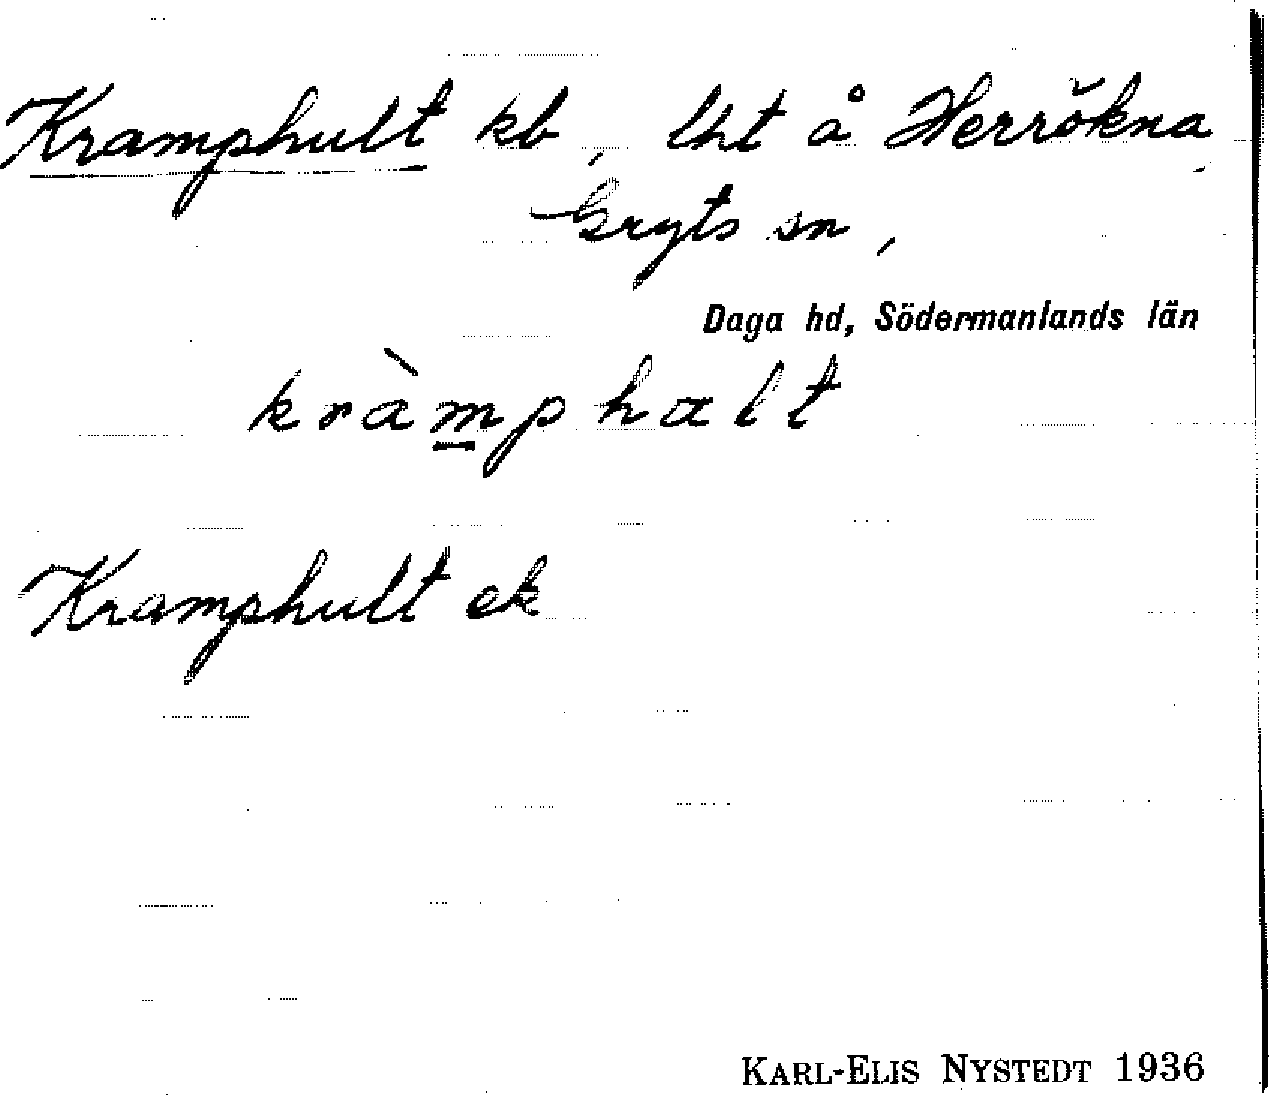 Kramphult kb, lht å Herrökna,
Gryts sn,
Daga hd, Södermanlands län
kràmphalt
Kramphult ek
KARL-ELIS NYSTEDT 1936